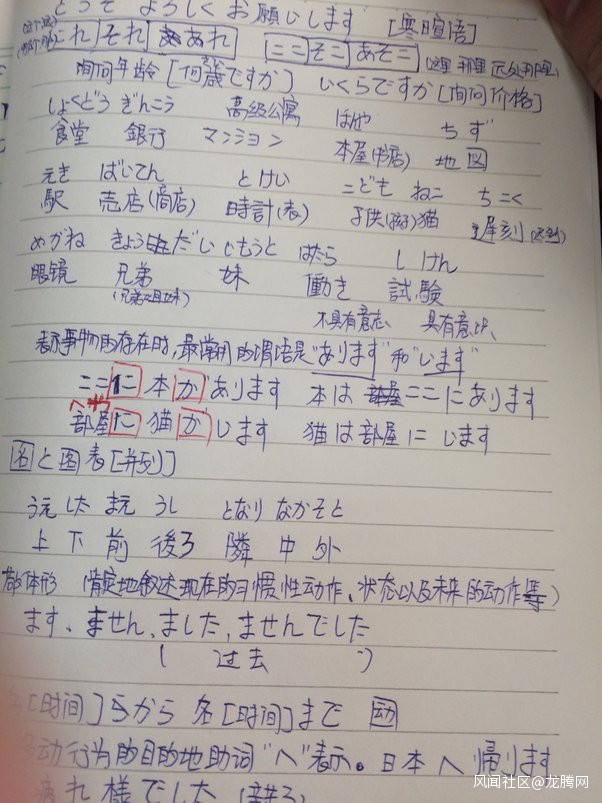 どうぞ よろしく お願いします [寒暄语]
これ それ あれ ここ そこ あそこ
询问年龄[何歳ですか] いくらですか[询问价格]
しょくどう ぎんこう 高级公寓 ほんや ちず
食堂 銀行 マンション 本屋(书店) 地図
えき ばいてん とけい こども ねこ ちこく
駅 売店(商店) 時計(表) 子供(孩子) 猫 遅刻(迟到)
めがね きょうだい いもうと はたら しけん
眼镜 兄弟 妹 働き 試験
(兄弟姐妹)
不具有意志、 具有意识、
表示事物的存在时,最常用的谓语是"あります"和"います"
ここに本があります 本は ここにあります
へや
部屋に猫がいます 猫は部屋にいます
名と名表[并列]
うえ した まえ うし となり なか そと
上 下 前 後ろ 隣 中 外
敬体形 (肯定地叙述现在的习惯性动作、状态以及未来的动作等)
ます、ません、ました、ませんでした
( 过去 )
[时间]から 名[时间]まで 动
动行为的目的地助词"へ"表示。日本へ帰ります
疲れ様でした
风闻社区@龙腾网